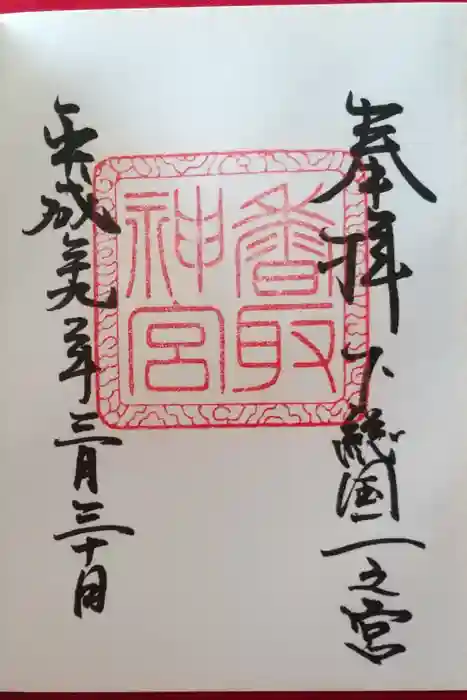 奉拝 下総国一之宮
香取
神宮
平成二十九年三月三十日